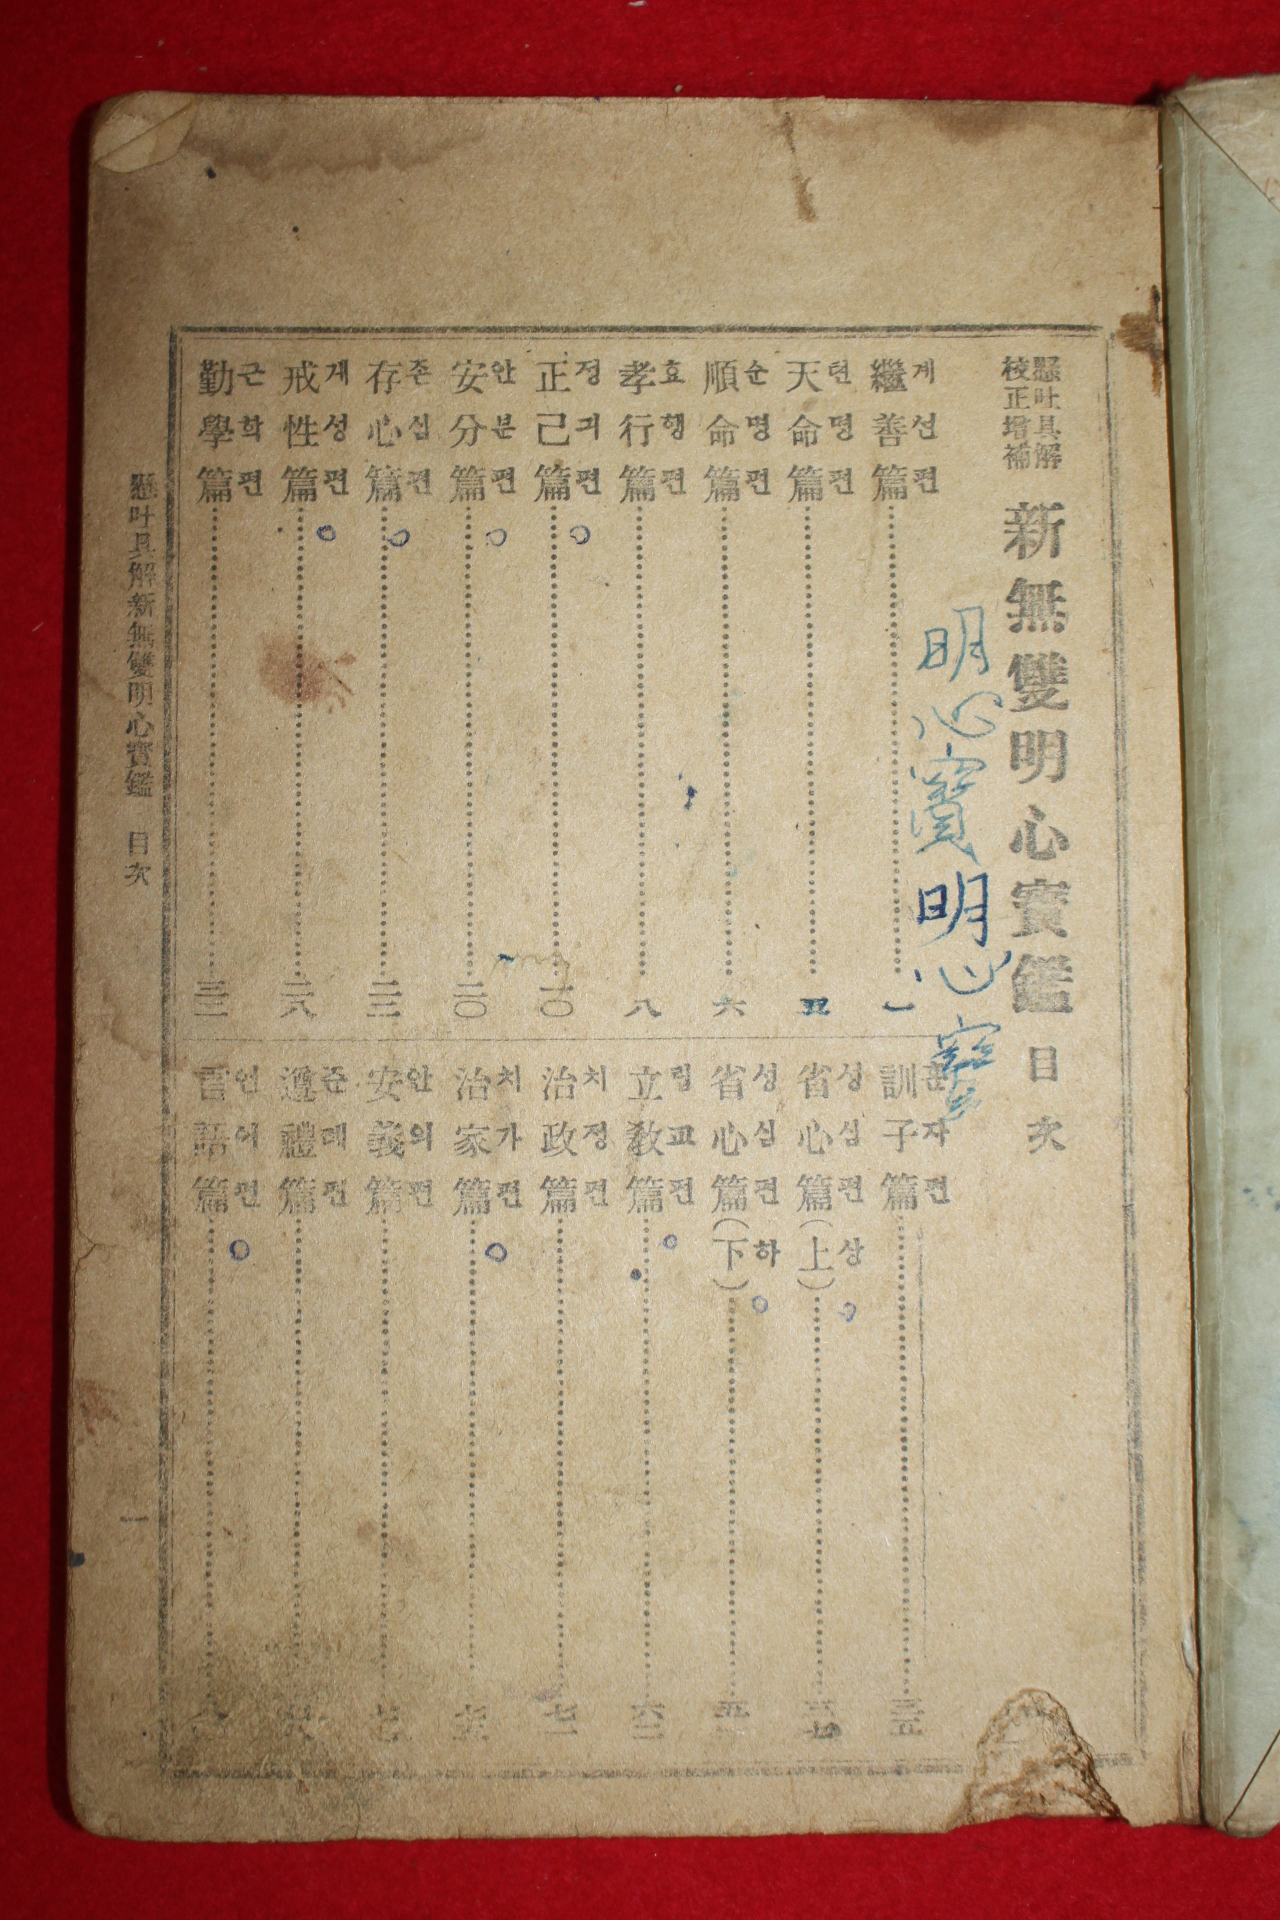 懸吐具解
校正增補
新無雙明心寶鑑 目次
明心寶明心寶
繼善篇 계선편 一
天命篇 텬명편 五
順命篇 순명편 六
孝行篇 효행편 八
正己篇 정긔편 一〇
安分篇 안분편 二〇
存心篇 존심편 二二
戒性篇 계성편 二八
勤學篇 근학편 三二
訓子篇 훈자편 三五
省心篇(上) 성심편 상 三七
省心篇(下) 성심편 하
立敎篇 립교편 六二
治政篇 치정편 七一
治家篇 치가편
安義篇 안의편
遵禮篇 준례편
言語篇 언어편
懸吐具解新無雙明心寶鑑 目次
一